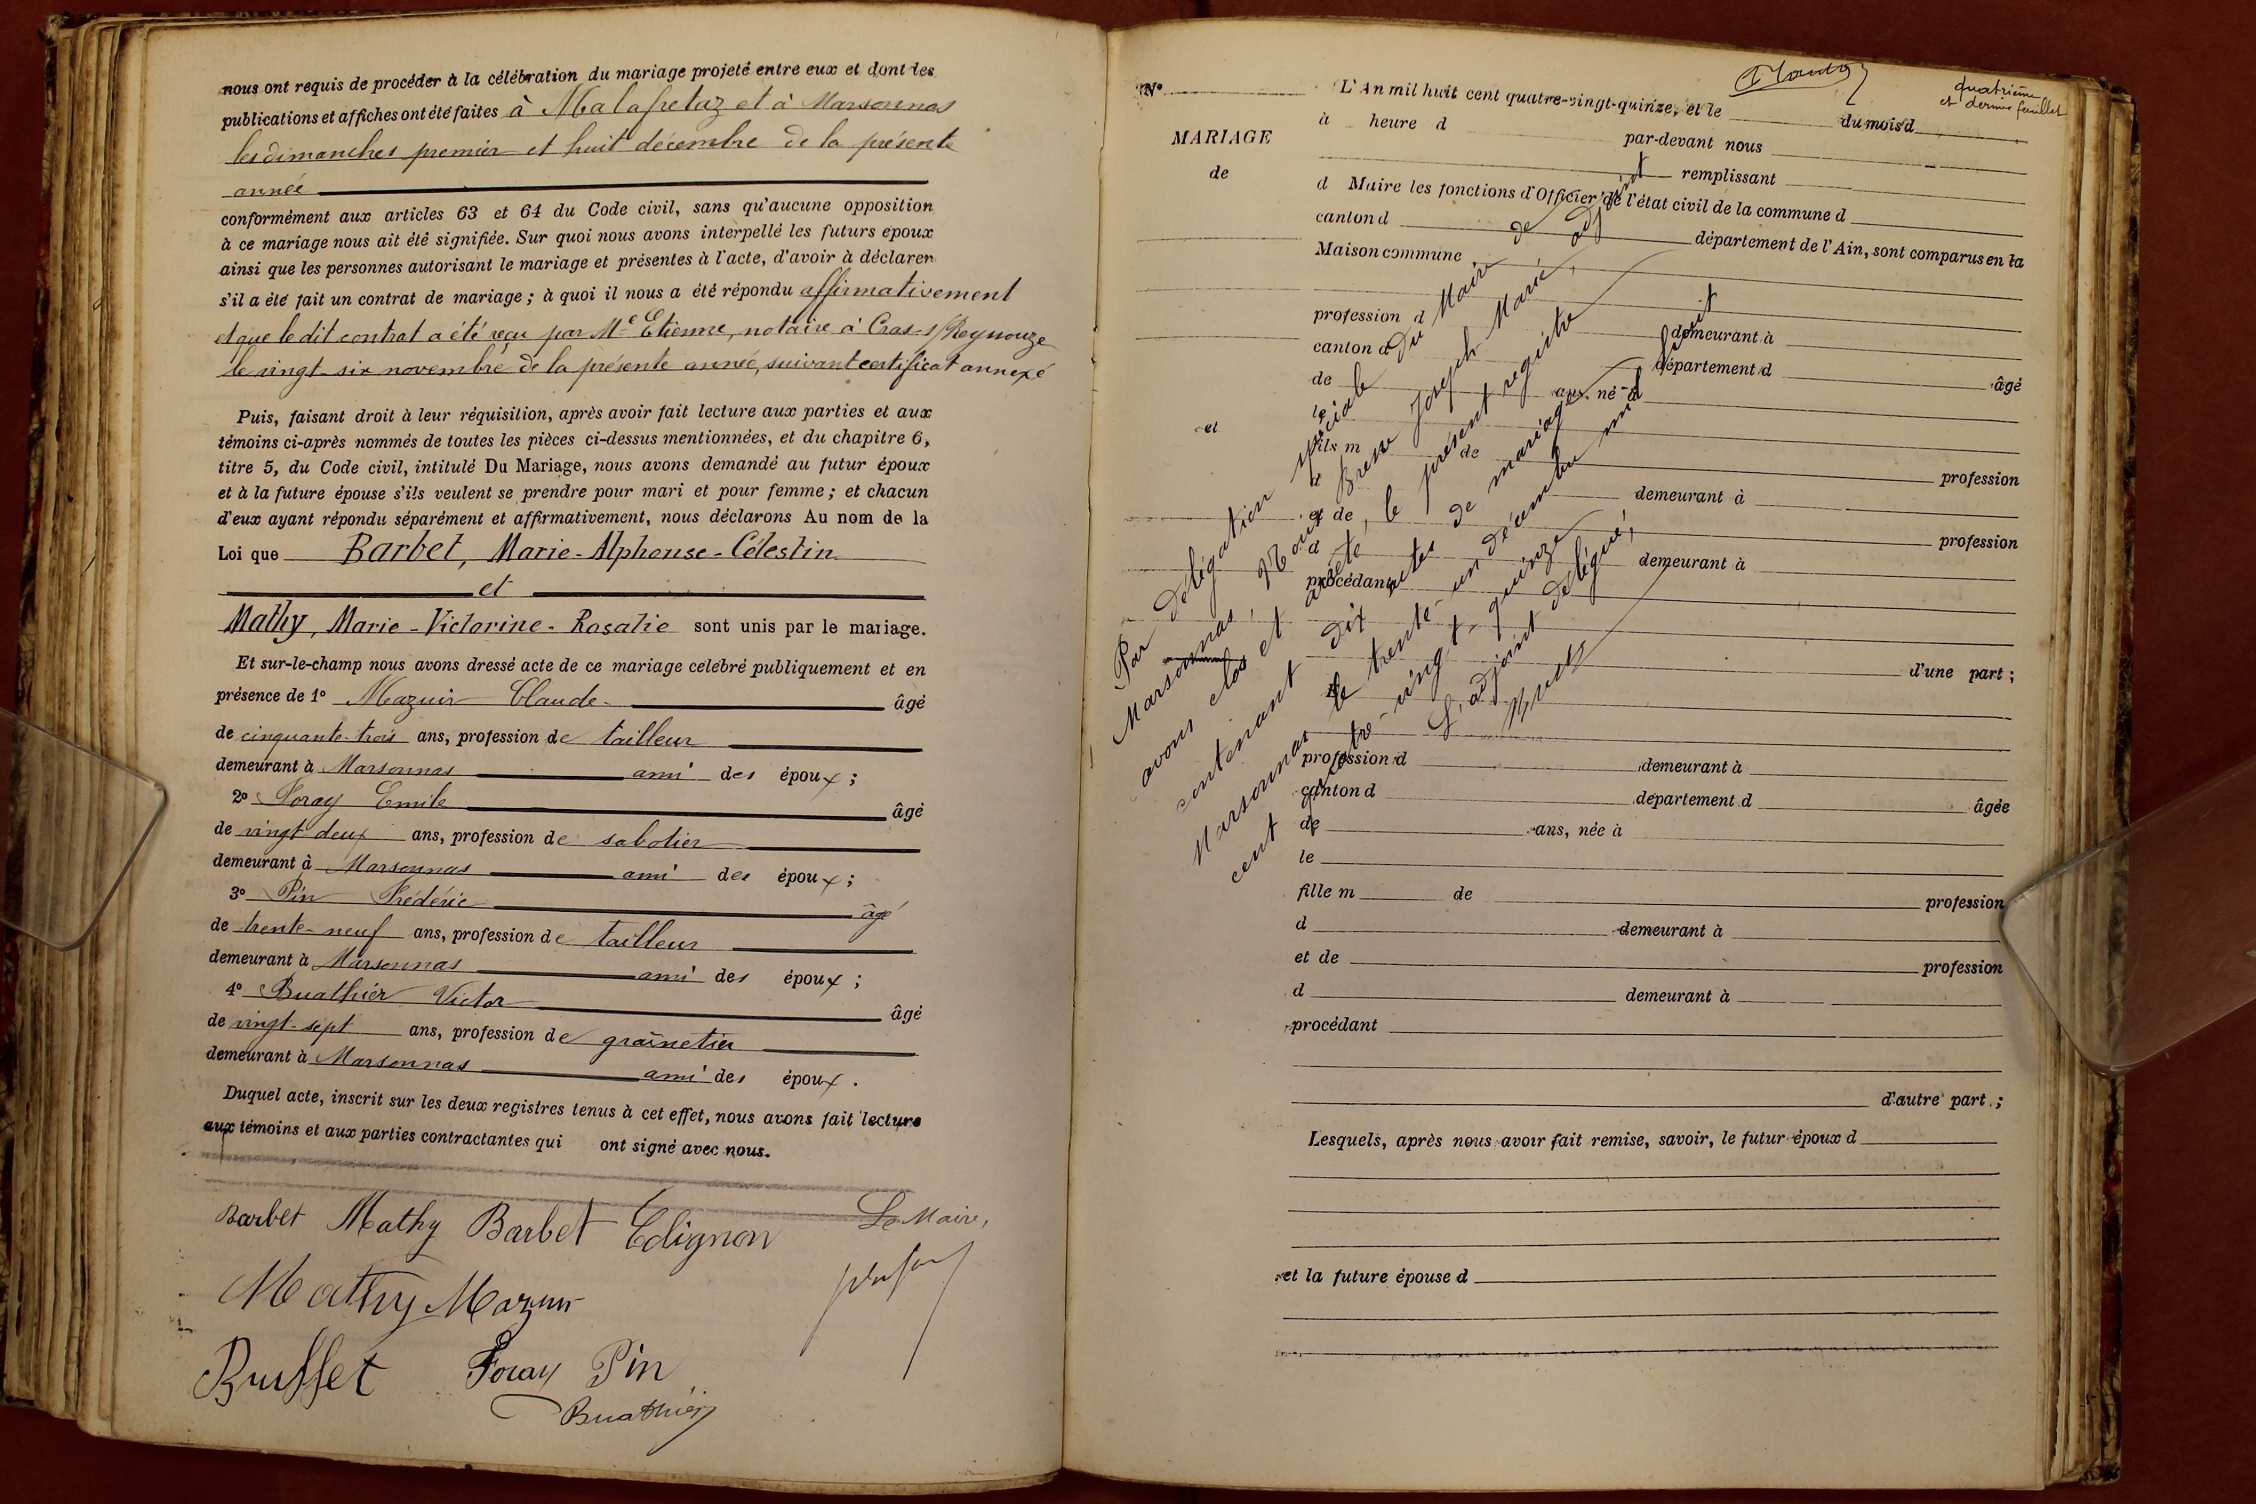 nous ont requis de procéder à la célébration du mariage projeté entre eux et dont les
publications et affiches ont été faites à Malafretaz et à Marsonnas
les dimanches premier et huit décembre de la présente
année
conformément aux articles 63 et 64 du Code civil, sans qu'aucune opposition
à ce mariage nous ait été signifiée. Sur quoi nous avons interpellé les futurs époux
ainsi que les personnes autorisant le mariage et présentes à l'acte, d'avoir à déclarer
s'il a été fait un contrat de mariage ; à quoi il nous a été répondu affirmativement
et que le dit contrat a été reçu par Me Etienne, notaire à Cras-s/Reyssouze
le vingt-six novembre de la présente année, suivant certificat annexé
Puis, faisant droit à leur réquisition, après avoir fait lecture aux parties et aux
témoins ci-après nommés de toutes les pièces ci-dessus mentionnées, et du chapitre 6,
titre 5, du Code civil, intitulé Du Mariage, nous avons demandé au futur époux
et à la future épouse s'ils veulent se prendre pour mari et pour femme ; et chacun
d'eux ayant répondu séparément et affirmativement, nous déclarons Au nom de la
Loi que Barbet, Marie-Alphonse-Célestin
et
Mathy, Marie-Victorine-Rosalie sont unis par le mariage.
Et sur-le-champ nous avons dressé acte de ce mariage celebré publiquement et en
présence de 1o Mazuir Claude âgé
de cinquante-trois ans, profession de tailleur
demeurant à Marsonnas ami des époux ;
2o Foray Emile âgé
de vingt deux ans, profession de sabotier
demeurant à Marsonnas ami des époux ;
3o Pin Frédéric âgé
de trente-neuf ans, profession de tailleur
demeurant à Marsonnas ami des époux ;
4o Buathier Victor âgé
de vingt-sept ans, profession de grainetier
demeurant à Marsonnas ami des époux .
Duquel acte, inscrit sur les deux registres tenus à cet effet, nous avons fait lecture
aux témoins et aux parties contractantes qui ont signé avec nous.
Barbet Mathy Barbet Edignon Le Maire,
Mathy Mazuir
Buffet Foray Pin
Buathier
quatrième
et dernier feuillet
No
L'An mil huit cent quatre-vingt-quinze, et le du mois d
à heure d par-devant nous
MARIAGE
remplissant
de
d Maire les fonctions d'Officier de l'état civil de la commune d
canton d département de l'Ain, sont comparus en la
Maison commune
profession d demeurant à
canton d département d âgé
de ans, né à
le
et
fils m de profession
d demeurant à
et de profession
d demeurant à
procédant
d'une part ;
Et
profession d demeurant à
canton d département d âgée
de ans, née à
le
fille m de profession
d demeurant à
et de profession
d demeurant à
procédant
d'autre part ;
Lesquels, après nous avoir fait remise, savoir, le futur époux d
et la future épouse d
Par délégation spéciale du Maire de
Marsonnas, Nous, Brevet Joseph Marie, adjoint
avons clos et arrêté, le présent registre
contenant dix actes de mariage
Marsonnas le trente-un décembre mil huit
cent quatre-vingt-quinze
L'adjoint délégué,